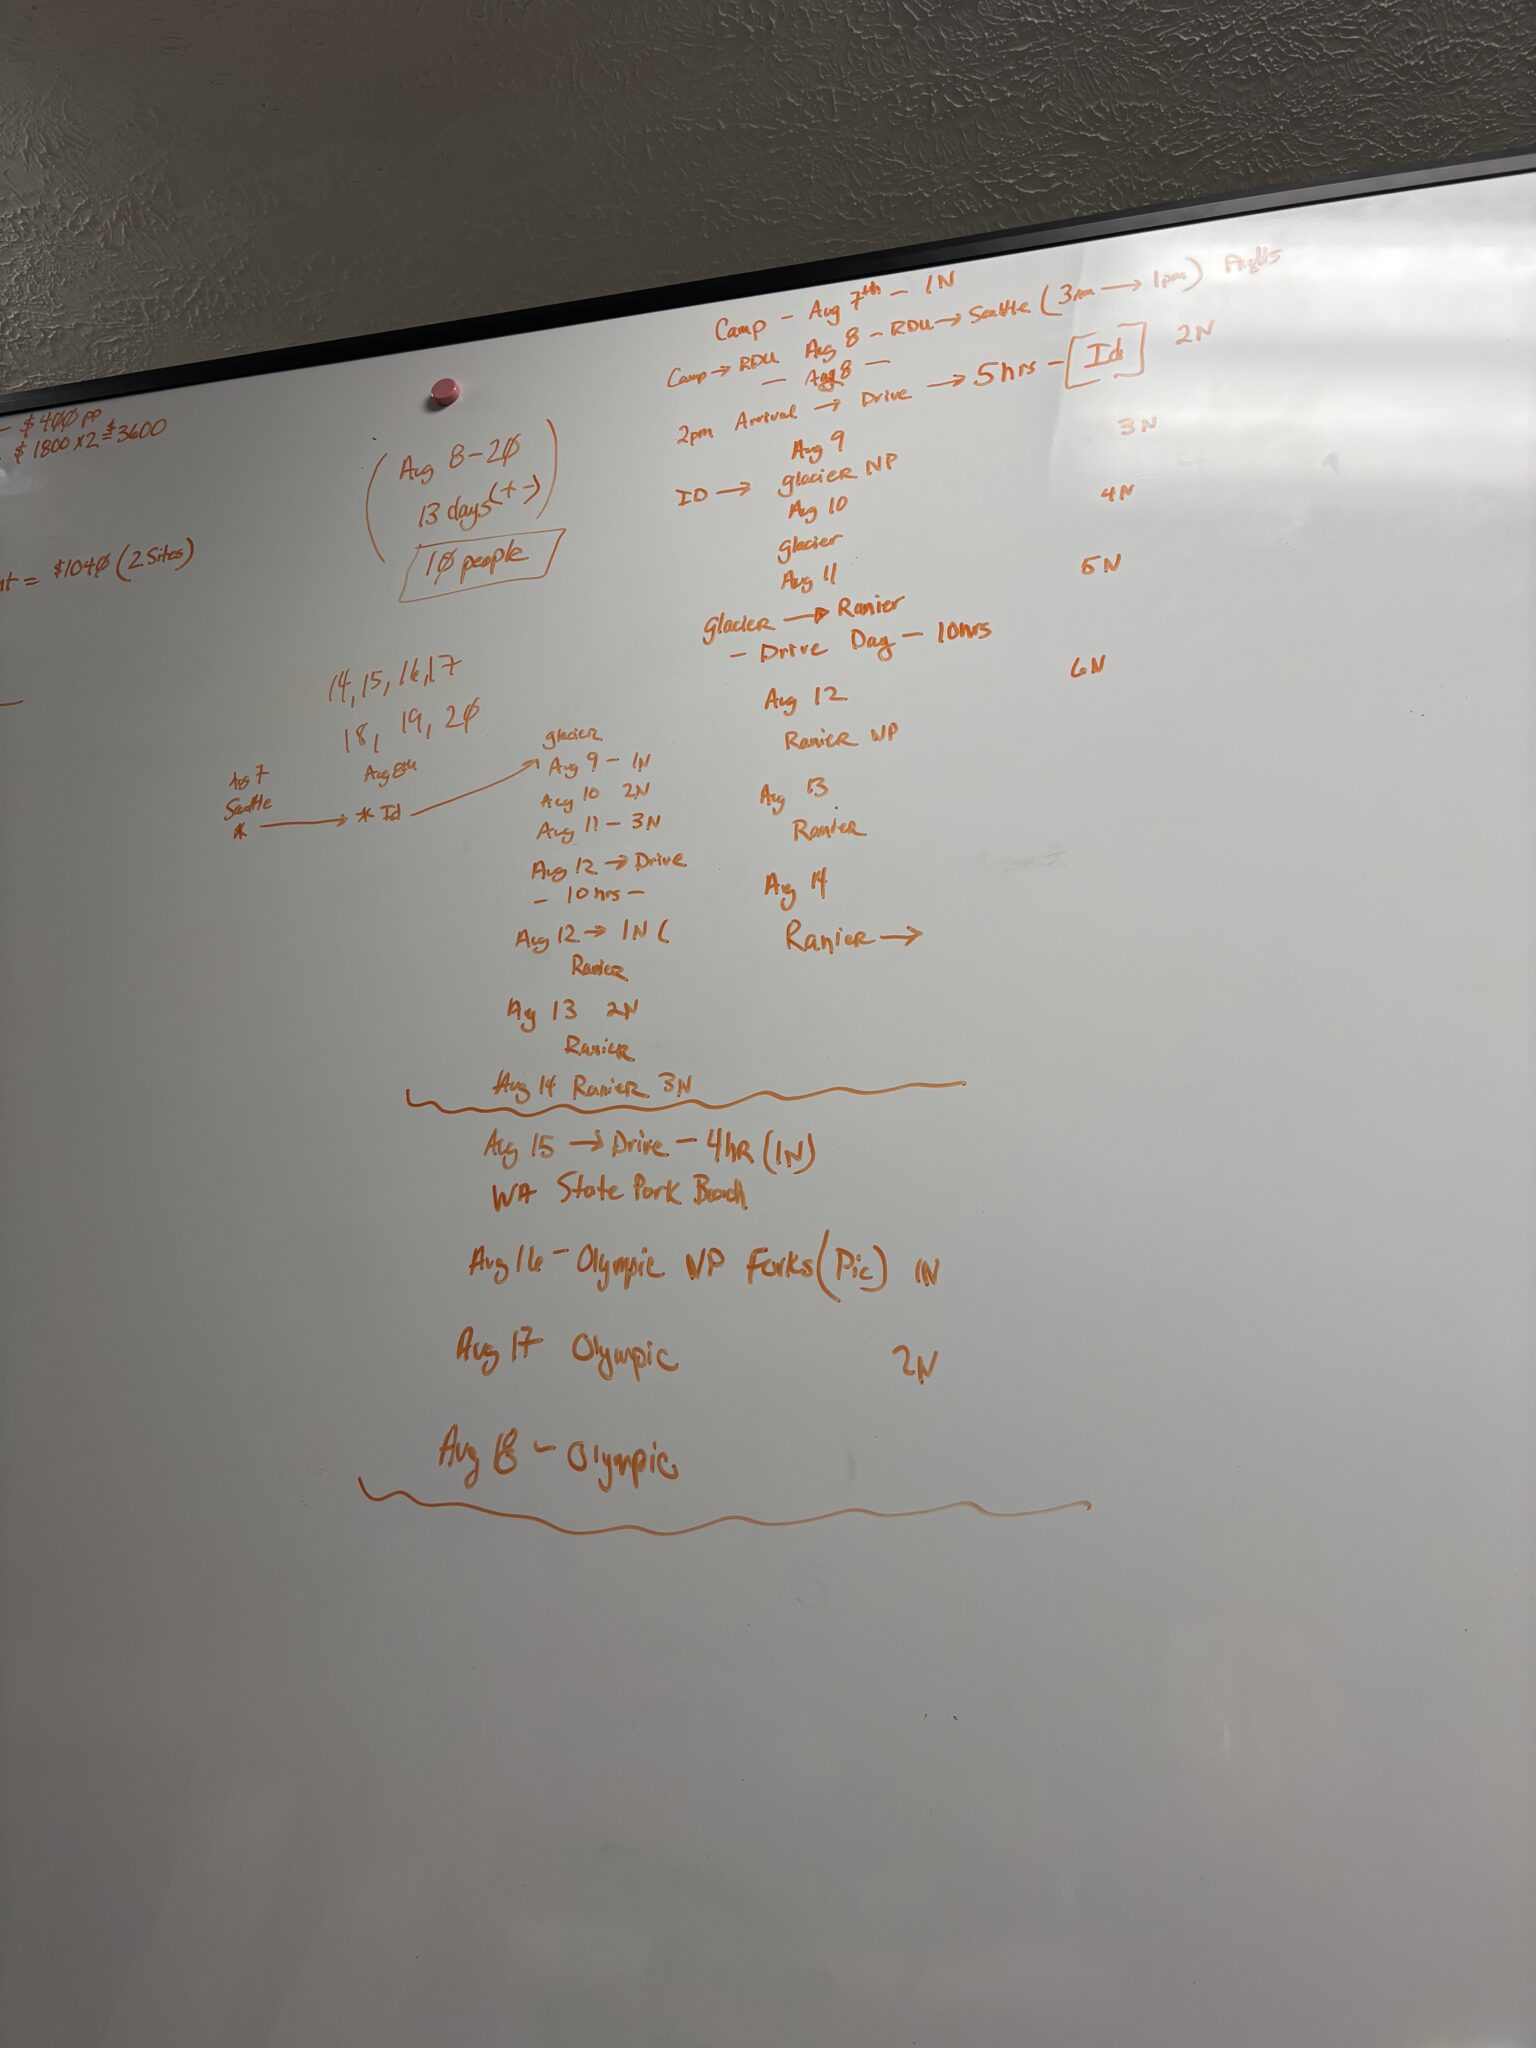 - $400 pp
$1800 x 2 = $3600
= $1040 (2 Sites)
Aug 8-20
13 days (+-)
10 people
14, 15, 16, 17
18, 19, 20
Aug 7
Seattle
*
Aug 8th
→ * Id
glacier
Aug 9 - 1N
Aug 10 2N
Aug 11 - 3N
Aug 12 → Drive
- 10 hrs -
Aug 12 → 1N (
Ranier
Ag 13 2N
Ranier
Aug 14 Ranier 3N
Aug 15 → Drive - 4hr (1N)
WA State Park Beach
Aug 16 - Olympic NP Forks (Pic) 1N
Aug 17 Olympic 2N
Aug 18 - Olympic
Camp - Aug 7th - 1N
Camp → RDU Aug 8 - RDU → Seattle ( → 1pm)
- Aug 8 -
2pm Arrival → Drive → 5 hrs - [Id] 2N
Aug 9 3N
ID → glacier NP
Aug 10 4N
glacier
Aug 11 5N
glacier → Ranier
- Drive Day - 10hrs
Aug 12 6N
Ranier NP
Aug 13
Ranier
Aug 14
Ranier →